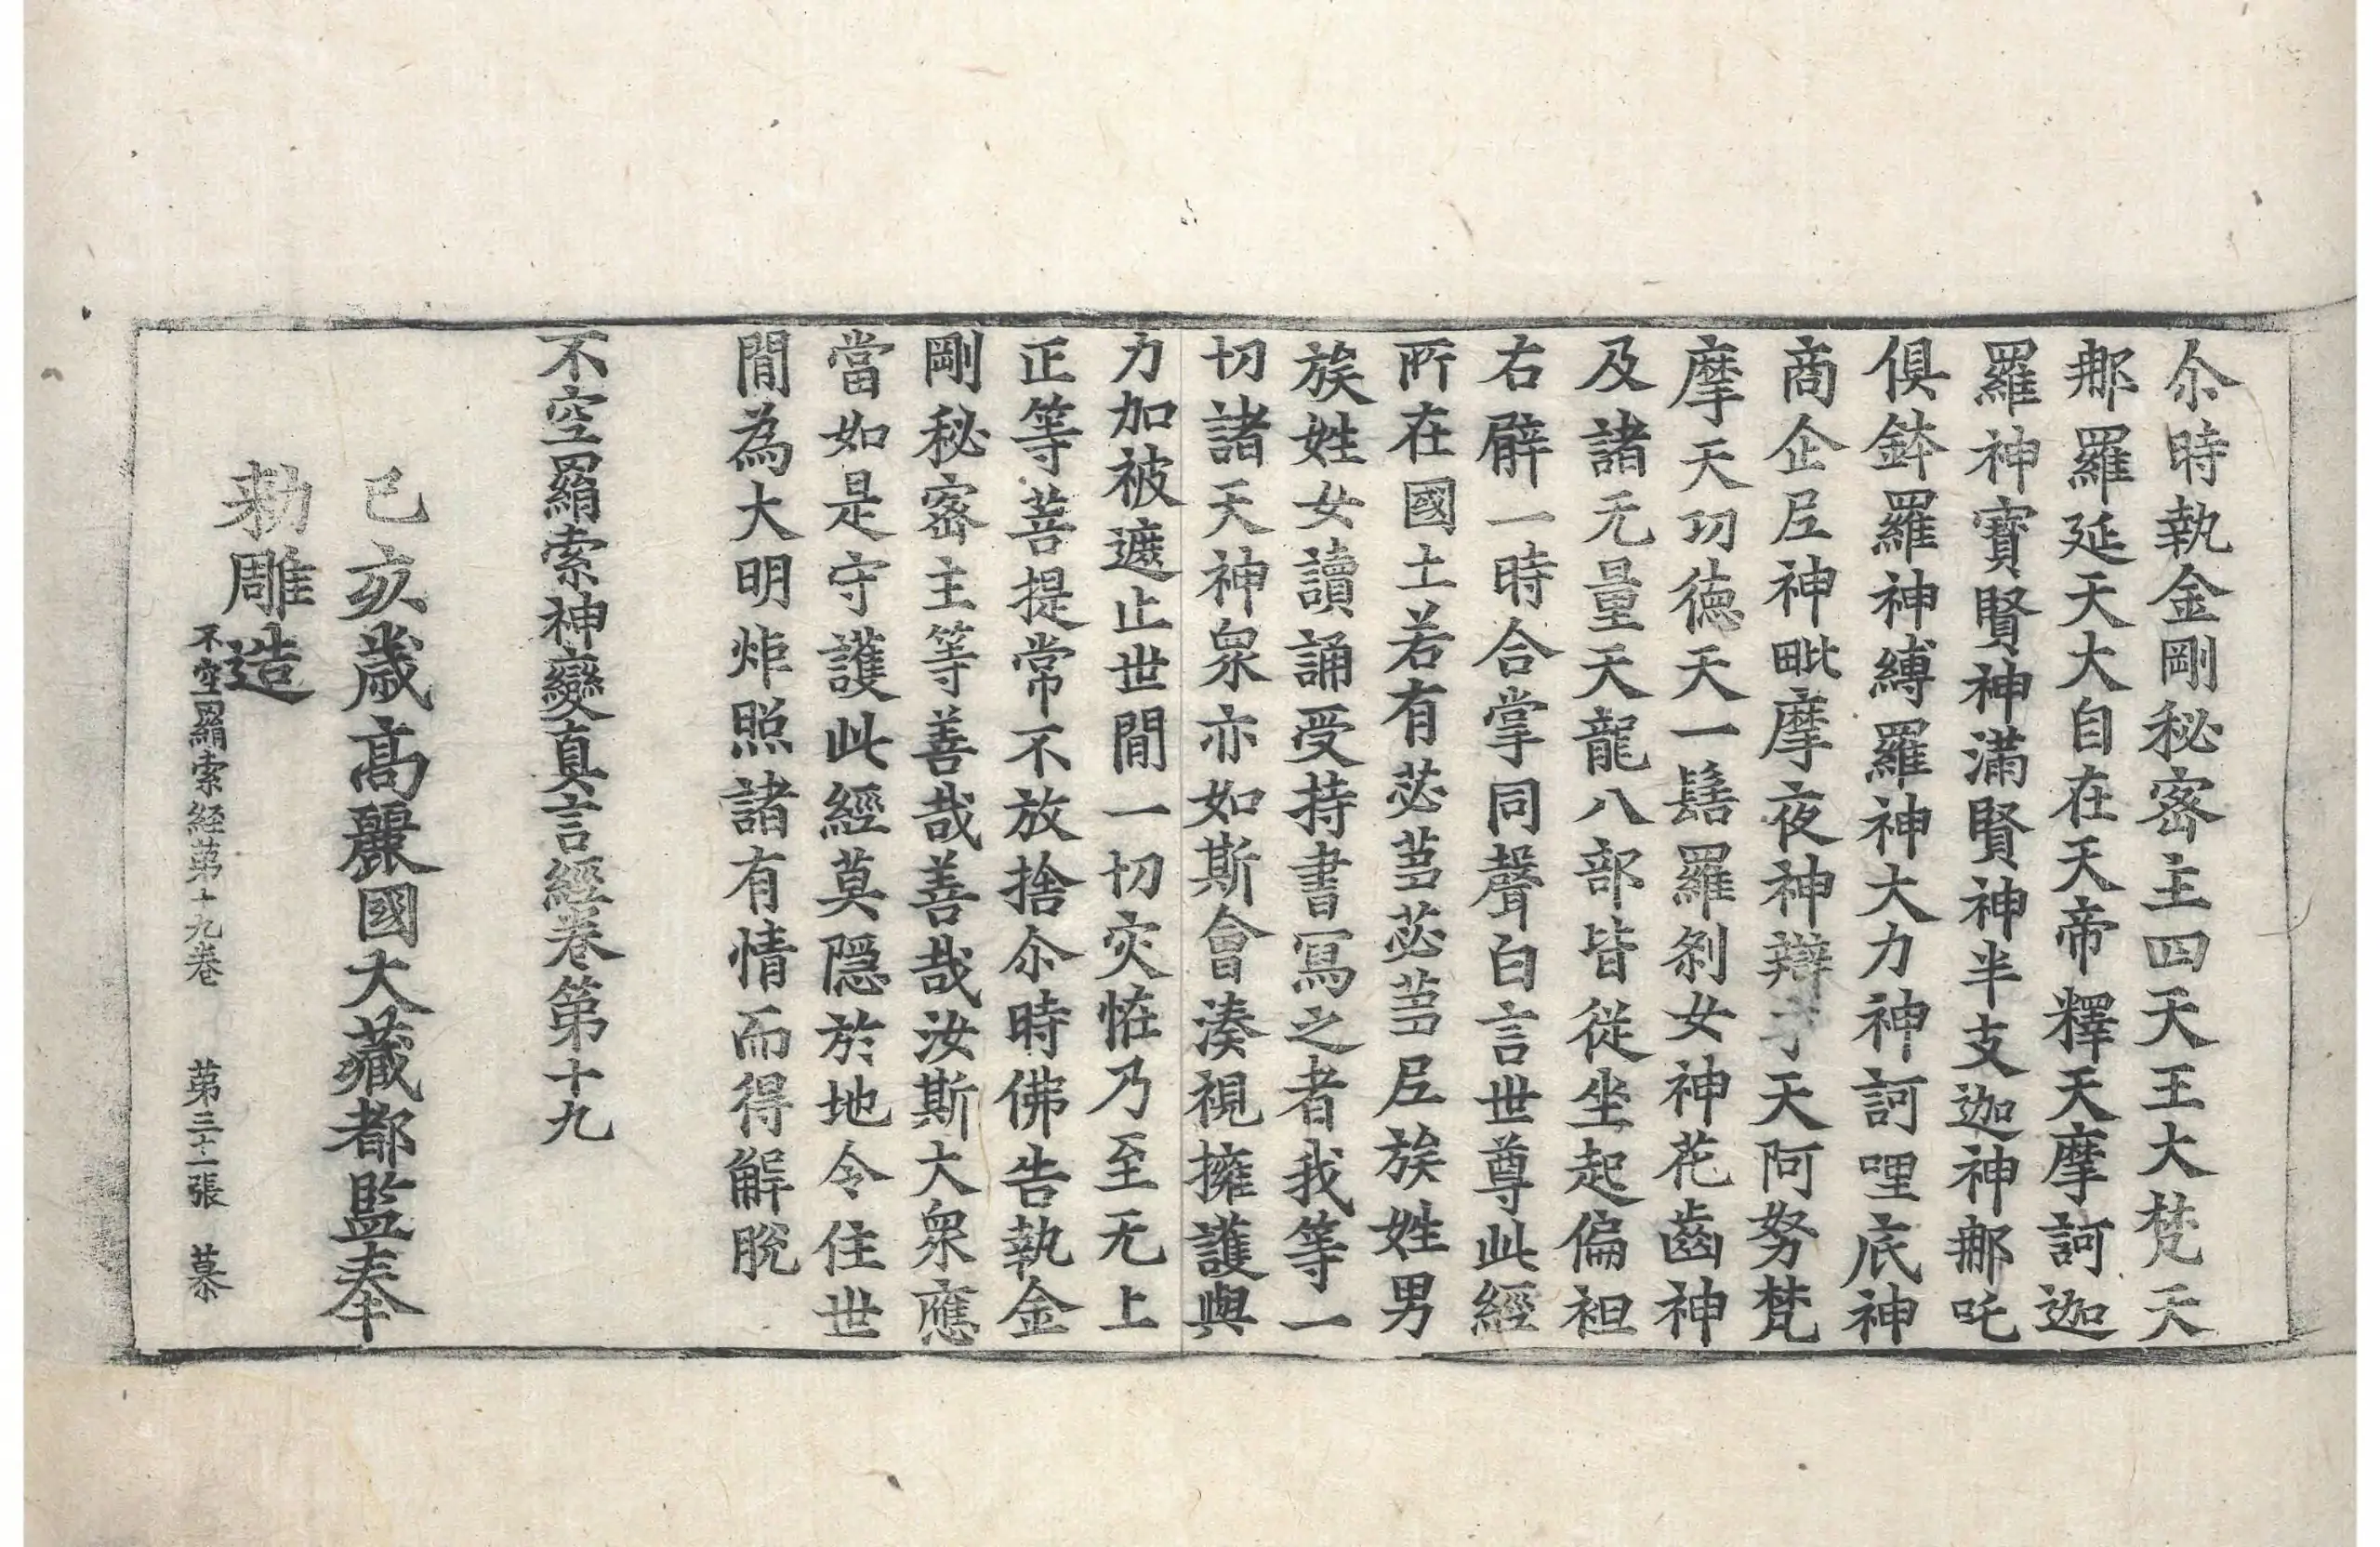 尒時執金剛秘密主四天王大梵天
那羅延天大自在天帝釋天摩訶迦
羅神寶賢神滿賢神半支迦神那吒
俱鉢羅神縛羅神大力神訶哩底神
商企尼神毗摩夜神辯才天阿努梵
摩天功德天一髻羅剎女神花齒神
及諸无量天龍八部皆從坐起偏袒
右臂一時合掌同聲白言世尊此經
所在國土若有苾蒭苾蒭尼族姓男
族姓女讀誦受持書寫之者我等一
切諸天神衆亦如斯會湊視擁護與
力加被遮止世間一切灾恠乃至无上
正等菩提常不放捨尒時佛告執金
剛秘密主等善哉善哉汝斯大衆應
當如是守護此經莫隱於地令住世
間為大明炬照諸有情而得解脫
不空羂索神變真言經卷第十九
己亥歲高麗國大藏都監奉
勑雕造
不空羂索経苐十九卷 苐三十一張 慕